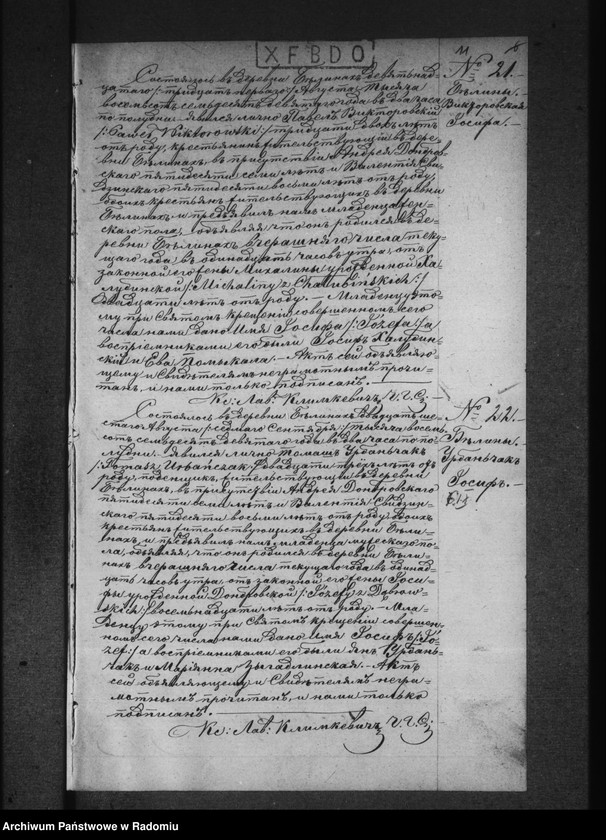 X F B D O
№ 21.
Бѣлины.
Викторовская
Іосифа.
Состоялось въ деревни Бѣлинахъ девятьнад-
цатаго /: тридцать перваго :/ Августа тысяча
восемьсотъ семьдесятъ девятаго года въ два часа
по полудни. явился лично Павелъ Викторовскій
/: Paweł Wiktorowski :/ тридцати двохъ лѣтъ
отъ роду, крестьянинъ жительствующій въ дере-
вни Бѣлинахъ, въ присутствіи Андрея Домбров-
скаго пятидесяти семи лѣтъ и Валентія
пятидесяти восьми лѣтъ отъ роду,
обоихъ крестьянъ жительствующихъ въ деревни
Бѣлинахъ и предъявилъ намъ младенца жен-
скаго пола, объявляя что онъ родился въ де-
ревни Бѣлинахъ вчерашняго числа теку-
щаго года въ одинадцать часовъ утра, отъ
законной его жены Михалины урожденной Ха-
лубинской /: Michaliny z Chałubińskich :/
двадцати лѣтъ отъ роду. — Младенцу это-
му при Святомъ крещеніи совершенномъ сего
числа нами дано имя Іосифа /: Józefa :/ а
воспріемниками его были Іосифъ Халубин-
скій и Ева Помыкала. — Актъ сей объявляю-
щему и Свидѣтелямъ неграмотнымъ прочи-
танъ, и нами только подписанъ.
Кс: Лав: Климкевичъ
№ 22.
Бѣлины.
Урбаньчакъ
Іосифъ.
Состоялось въ деревни Бѣлинахъ двадцать ше-
стаго Августа /: седьмаго Сентября :/ тысяча восемь-
сотъ семьдесятъ девятаго года въ два часа по по-
лудни. явился лично Томашъ Урбаньчакъ
/: Tomasz Urbańczak :/ двадцати трехъ лѣтъ отъ
роду, поденщикъ, жительствующій въ деревни
Бѣлинахъ, въ присутствіи Андрея Домбровскаго
пятидесяти семи лѣтъ и Валентія
пятидесяти восьми лѣтъ отъ роду, обоихъ
крестьянъ жительствующихъ въ деревни Бѣли-
нахъ и предъявилъ намъ младенца мужескаго по-
ла, объявляя, что онъ родился въ деревни Бѣли-
нахъ вчерашняго числа текущаго года въ одинад-
цать часовъ утра, отъ законной его жены Іози-
фы урожденной Домбровской /: Józefy z Dąbrow-
skich :/ восемьнадцати лѣтъ отъ роду. — Мла-
денцу этому при Святомъ крещеніи совершен-
номъ сего числа нами дано имя Іосифъ /: Jó-
zef :/ а воспріемниками его были Янъ Урбань-
чакъ и Маріянна Цыгадлинская. — Актъ
сей объявляющему и Свидѣтелямъ негра-
мотнымъ прочитанъ, и нами только
подписанъ.
Кс: Лав: Климкевичъ
Archiwum Państwowe w Radomiu